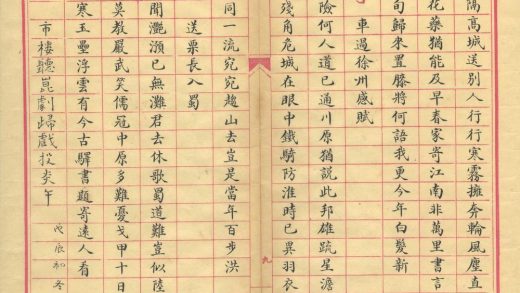 隔高城送別人行行寒霧擁奔輪風塵直
花藥猶能及早春家寄江南非萬里書言
旬歸來置膝將何語我更今年白髮新
車過徐州感賦
險何人道已通川原猶說此邦雄疏星澹
殘角危城在眼中鐵騎防淮時已異羽衣
九
同一流宛宛趨山去豈是當年百步洪
送票長入蜀
聞灩澦已無灘君去休歌蜀道難豈似陸
莫教嚴武笑儒冠中原多難憂戈甲十日
寒玉壘浮雲有今古驛書題寄遠人看
戊辰初冬
市樓聽崑劇歸戲投炎午